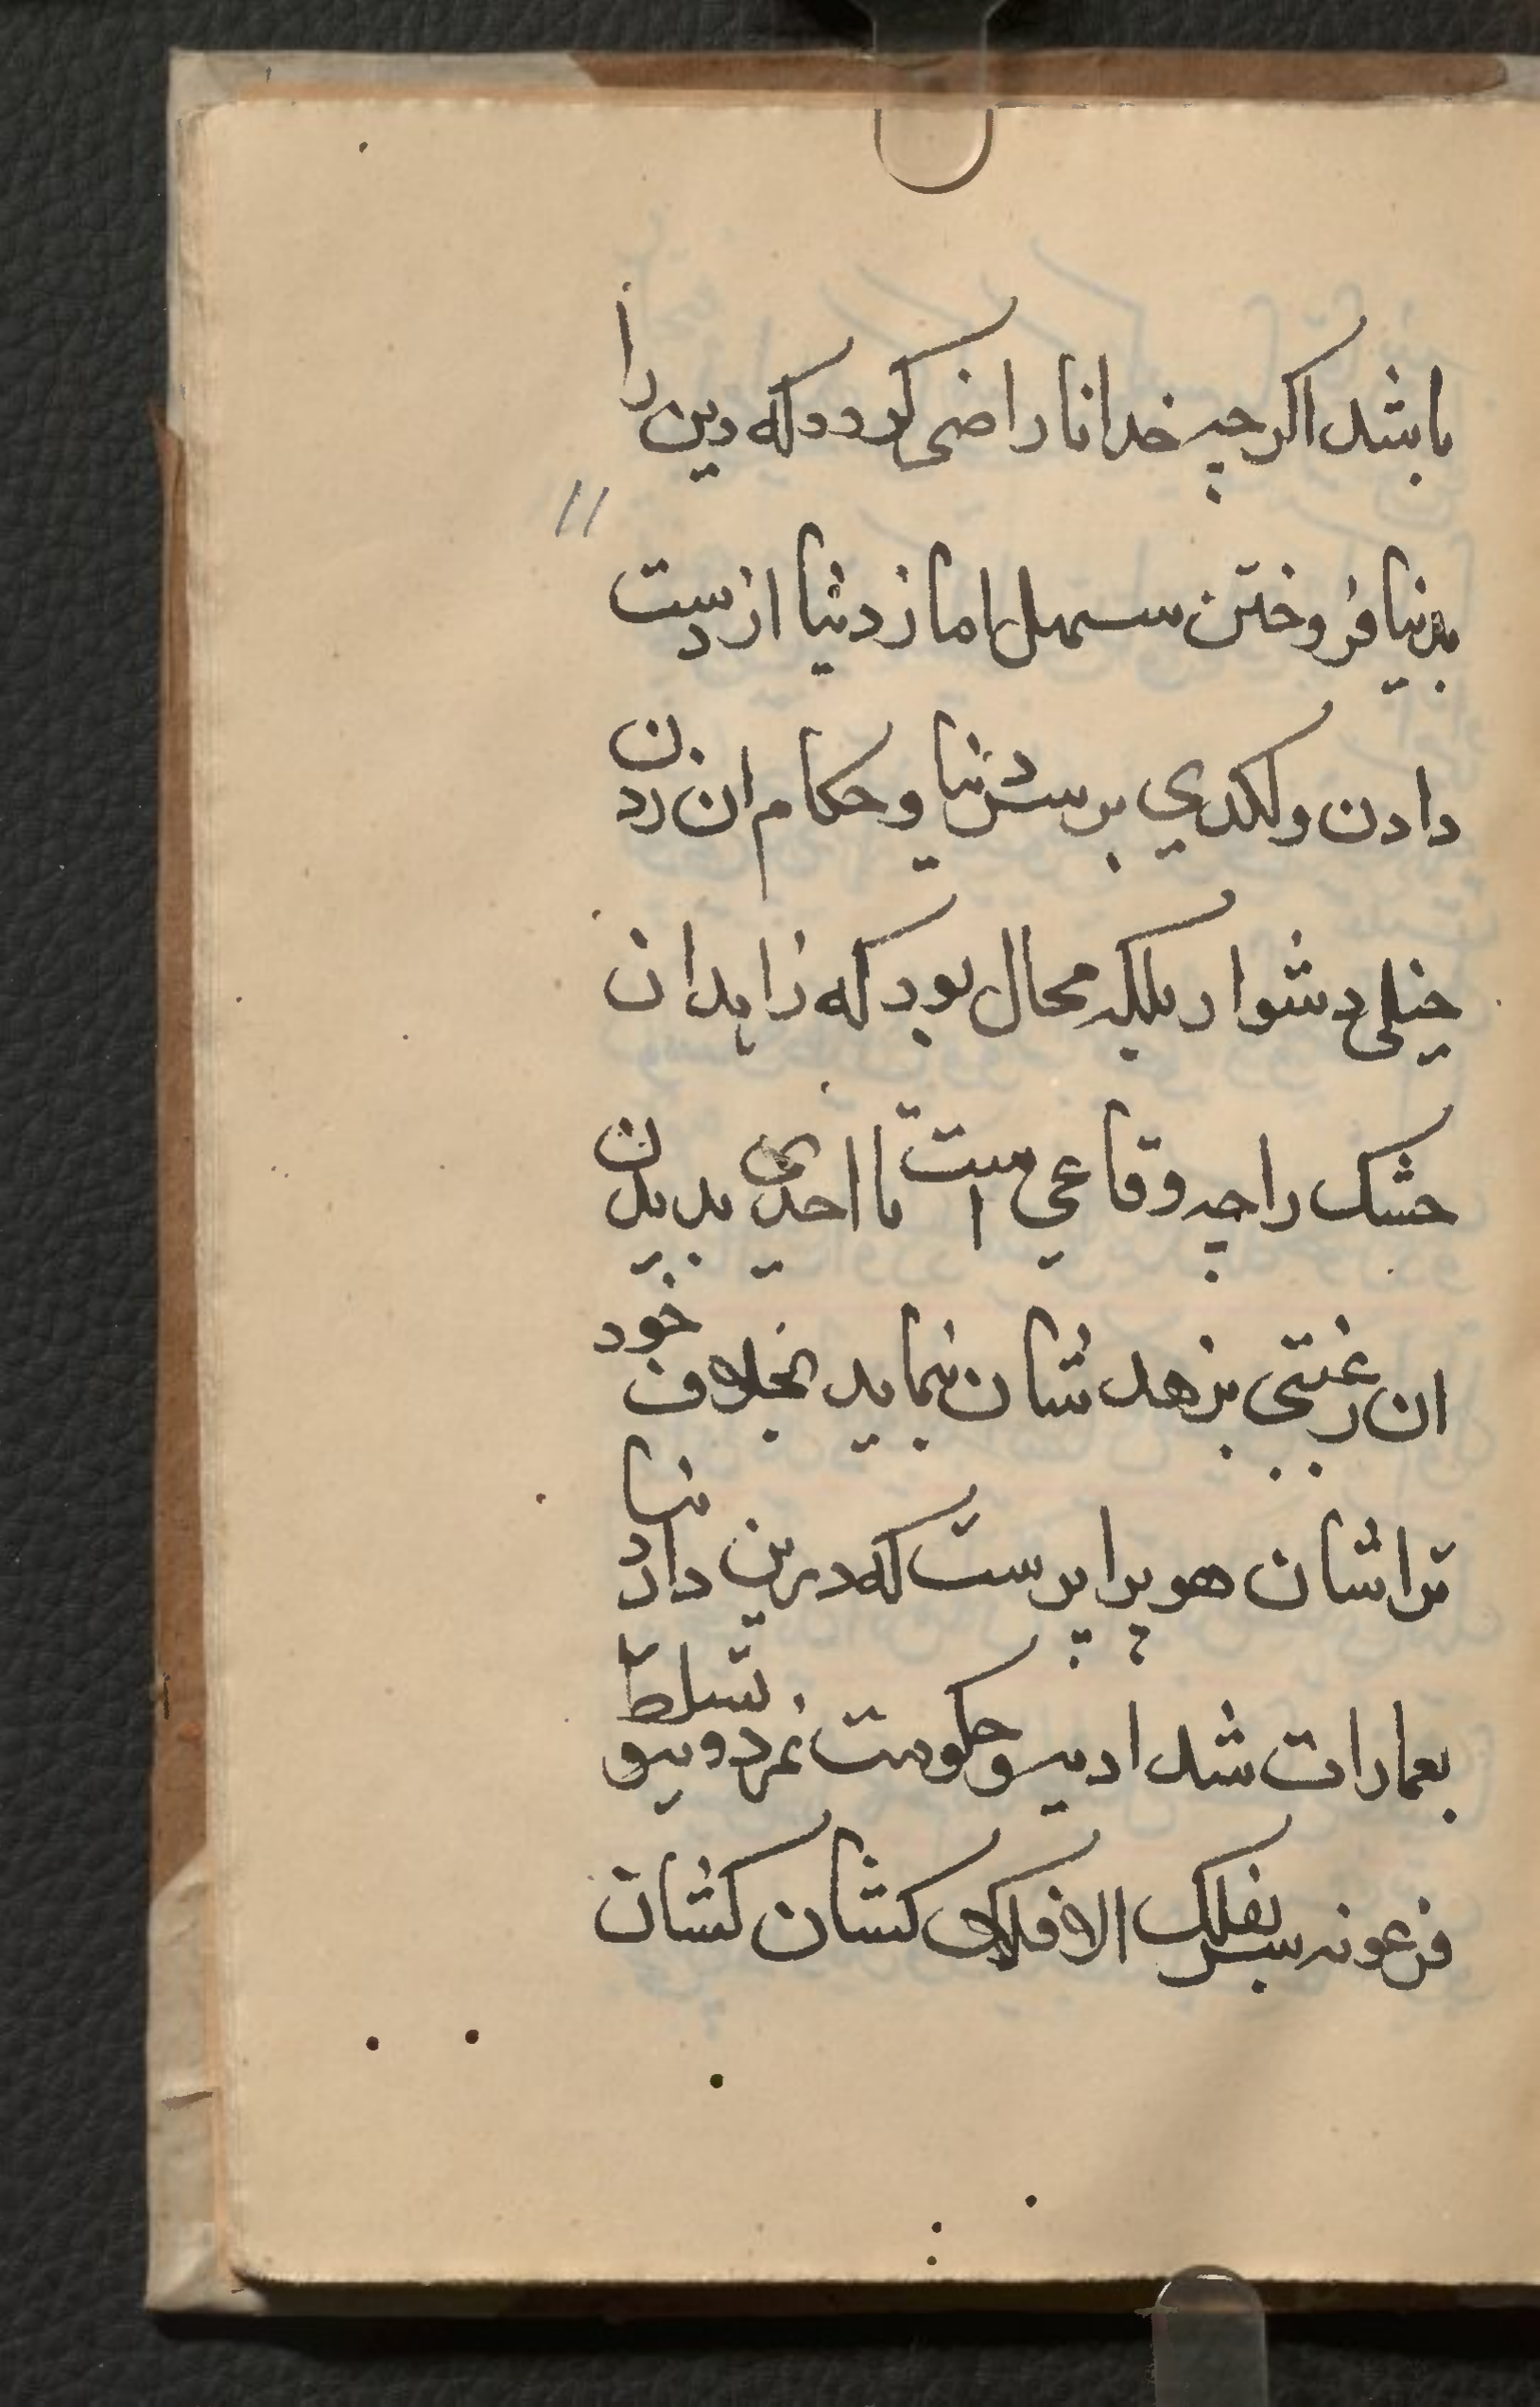 باشد اکرچه خدا ناراضی کردد که دین را
11
بدنیا فروختن سهل اما ز دنیا از دست
دادن و لکدی بر سر دنیا و حکام ان زدن
خیلی دشوار بلکه محال بود که زاهدان
خشک را چه وقاعی است تا احدی بدیدن
ان رغبتی بزهدشان نماید بخلاف خود
تراشان هوا پرست که درین دار دنیا
بعمارات شدادیه و حکومت نمرودیه و تسلط
فرعونه سر بفلک الافلاک کشان کشان